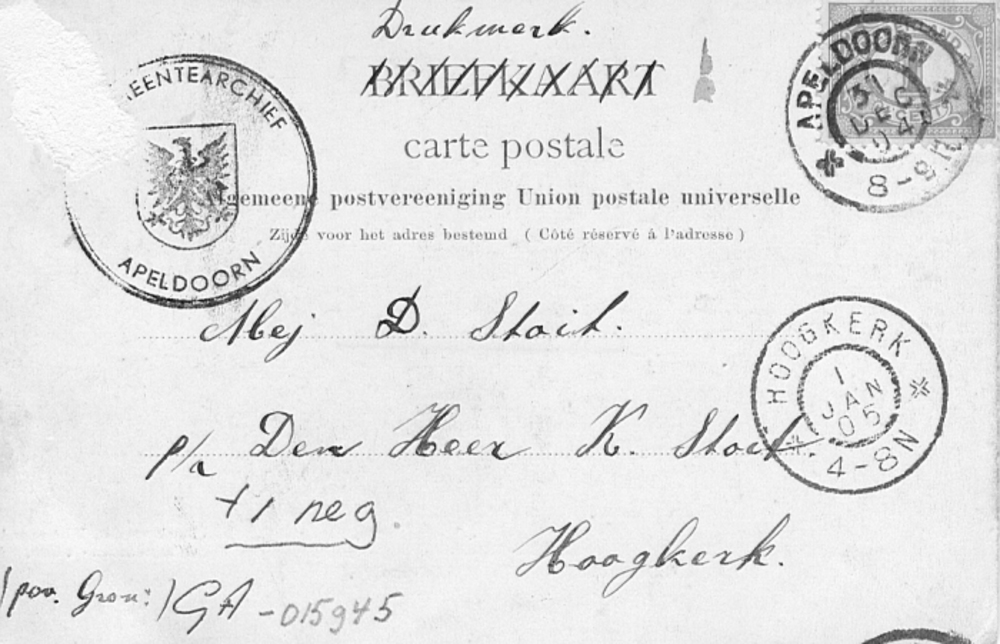 Drukwerk.
BRIEFKAART
carte postale
Algemeene postvereeniging Union postale universelle
Zijde voor het adres bestemd ( Côté réservé à l'adresse )
GEMEENTEARCHIEF
APELDOORN
APELDOORN
31 DEC 04
8-9
Mej D. Stoit.
HOOGKERK
1
JAN
05
4-8N
p/a Den Heer K. Stoit.
+ 1 neg
Hoogkerk.
GA -015945